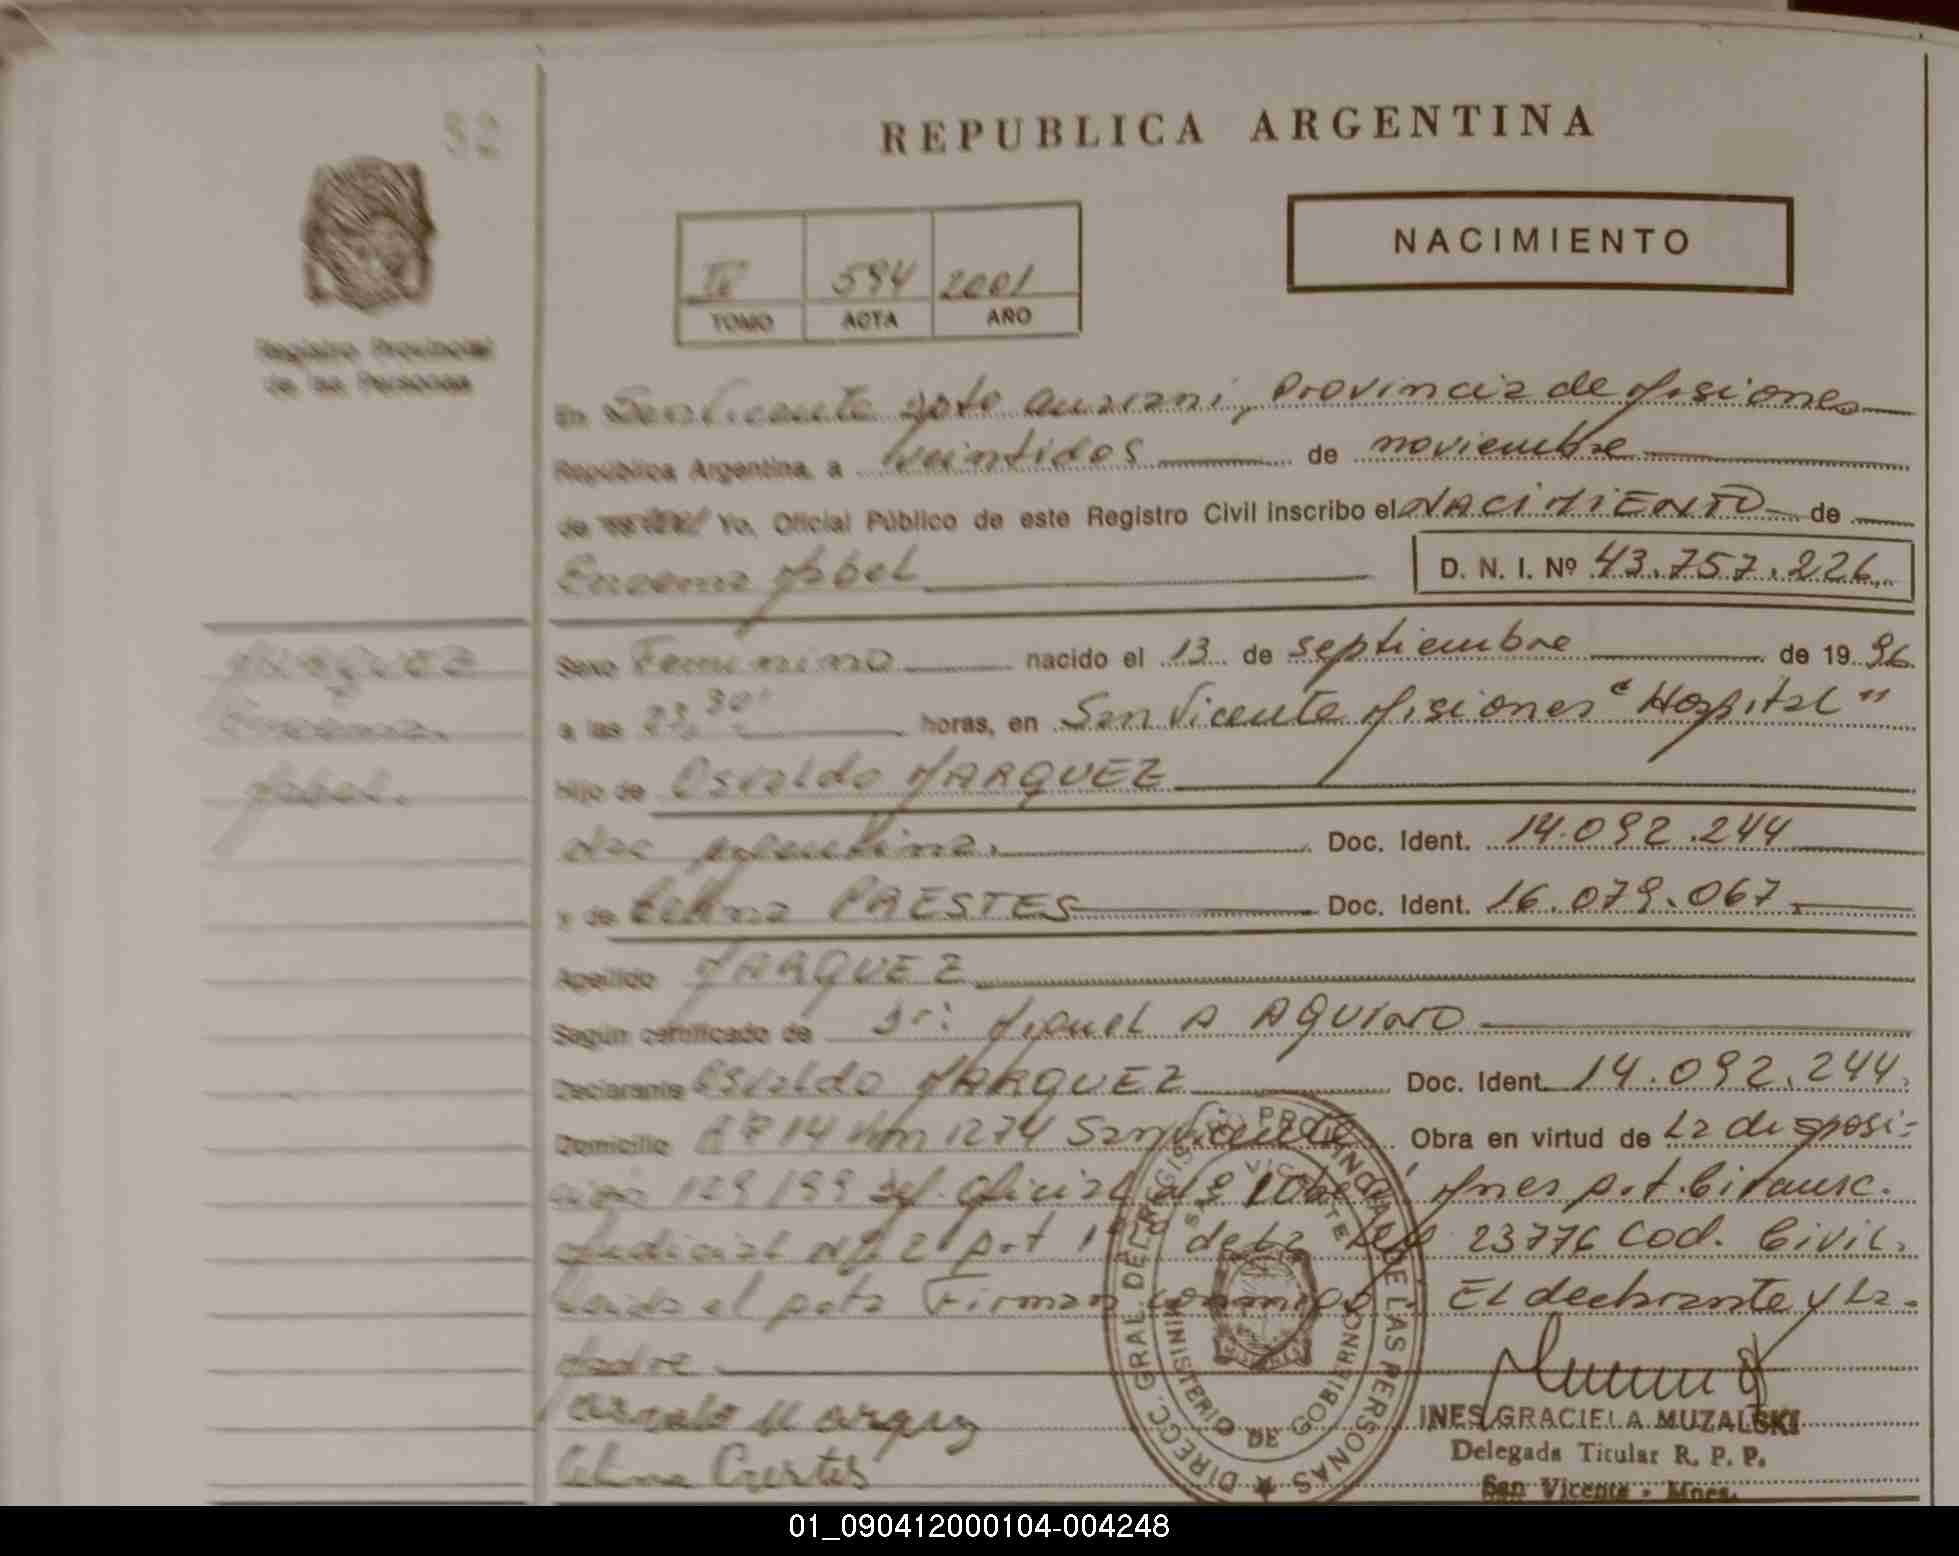 52
REPUBLICA ARGENTINA
NACIMIENTO
IIº 594 2001
TOMO ACTA AÑO
Registro Provincial
de las Personas
En San Vicente Dpto Guarani, Provincia de Misiones
República Argentina, a veintidos de noviembre
de Yo, Oficial Público de este Registro Civil inscribo el NACIMIENTO de
Mabel
D. N. I. Nº 43.757.226
MARQUEZ
Sexo Femenino nacido el 13 de septiembre de 1996
a las 23 30' horas, en San Vicente Misiones "Hospital"
Mabel.
Hijo de Osvaldo MARQUEZ
nac Argentina. Doc. Ident. 14.092.244
y de Celina PRESTES Doc. Ident. 16.079.067
Apellido MARQUEZ
Según certificado de Dr: Miguel A AQUINO
Declarante Osvaldo MARQUEZ Doc. Ident. 14.092.244
Domicilio R Nº 14 Km 1274 San Vicente Obra en virtud de La disposi-
ción 129/99 Of. Mnes Art.
Judicial Nº 2 Art 1º de La Ley 23776 Cod. Civil.
Leida el Acta Firman conmigo. El declarante y La
Madre
Marquez
Celina Prestes
DIRECC. GRAL. DEL REGISTRO PROVINCIAL DE LAS PERSONAS
SAN VICENTE
MINISTERIO DE GOBIERNO
INES GRACIELA MUZALSKI
Delegada Titular R. P. P.
San Vicente - Mnes.
01_090412000104-004248